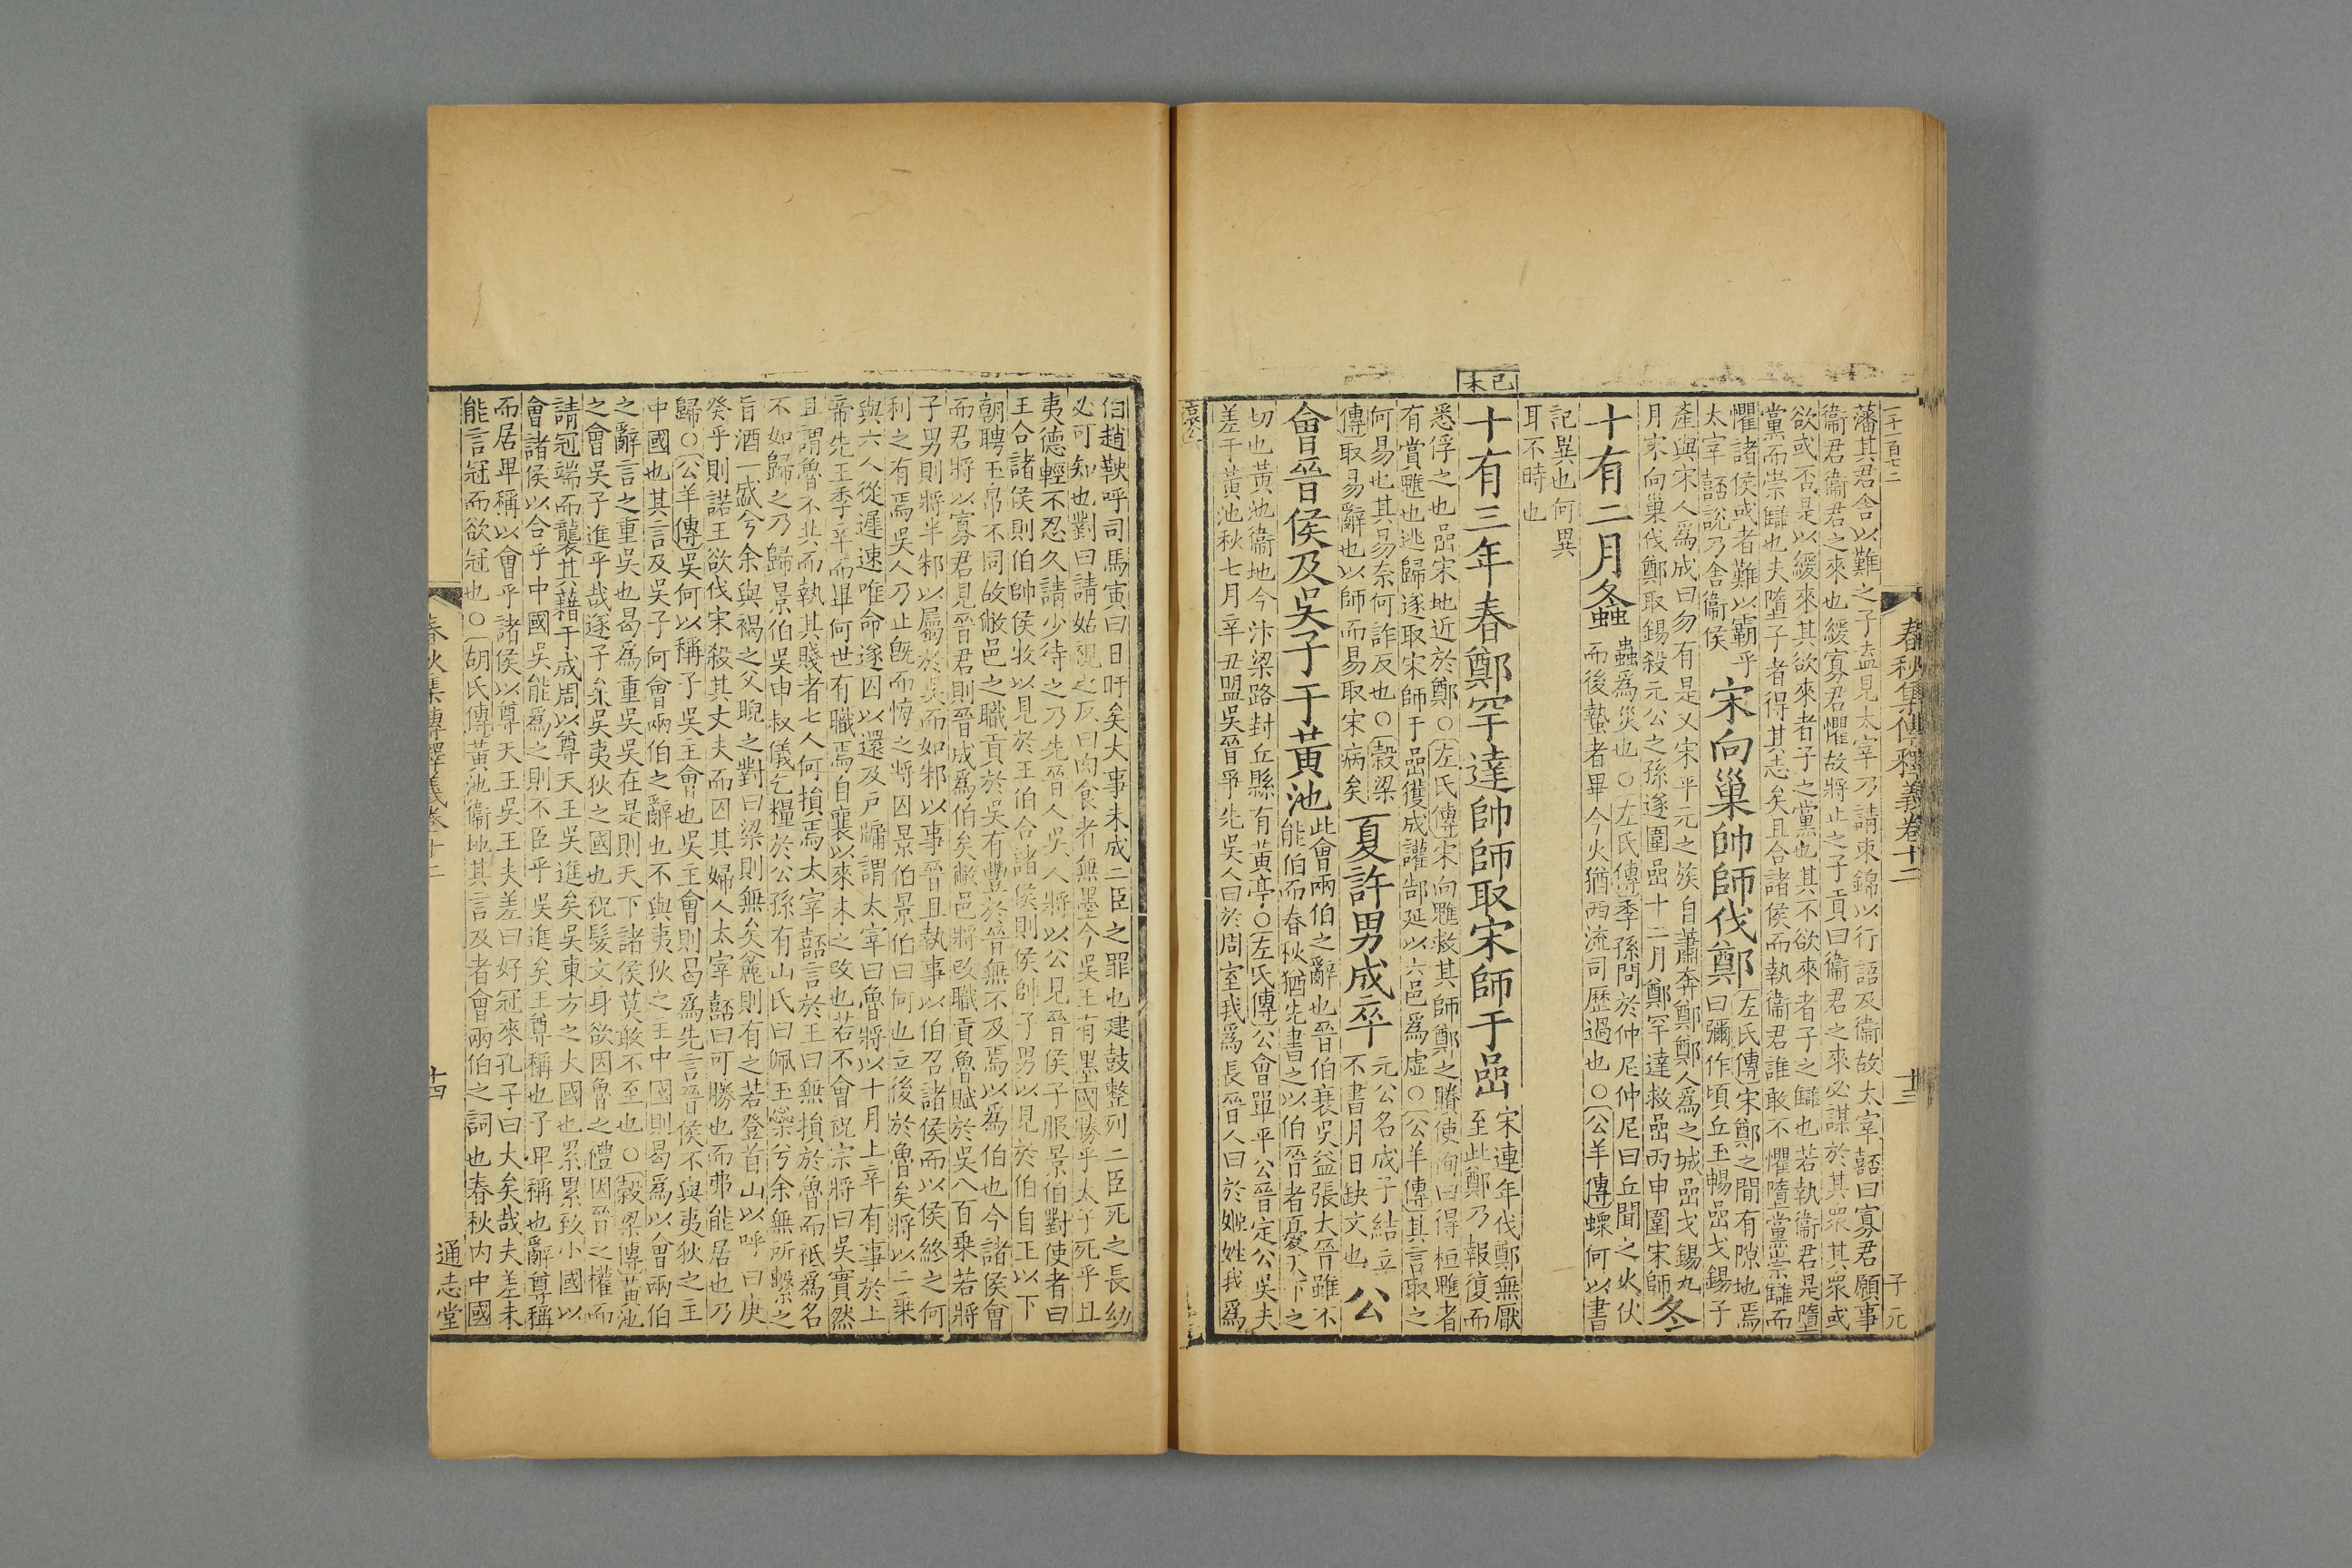 二千一百七十二
春秋集傳釋義卷十二
十三
子元
藩其君舍以難之子盍見太宰乃請束錦以行語及衞故太宰嚭曰寡君願事
衞君衞君之來也緩寡君懼故將止之子貢曰衞君之來必謀於其眾其眾或
欲或否是以緩來其欲來者子之黨也其不欲來者子之讎也若執衞君是墮
黨而崇讎也夫墮子者得其志矣且合諸侯而執衞君誰敢不懼墮黨崇讎而
懼諸侯或者難以霸乎
太宰嚭說乃舍衞侯
宋向巢帥師伐鄭
左氏傳宋鄭之閒有隙地焉
曰彌作頃丘玉暢嵒戈錫子
產與宋人爲成曰勿有是及宋平元之族自蕭奔鄭鄭人爲之城嵒戈錫九
月宋向巢伐鄭取錫殺元公之孫遂圍嵒十二月鄭罕達救嵒丙申圍宋師
冬
十有二月螽
蟲爲災也○左氏傳季孫問於仲尼仲尼曰丘聞之火伏
而後蟄者畢今火猶西流司歷過也○公羊傳蝝何以書
記異也何異
耳不時也
己未
十有三年春鄭罕達帥師取宋師于嵒
宋連年伐鄭無厭
至此鄭乃報復而
悉俘之也嵒宋地近於鄭○左氏傳宋向魋救其師鄭之賸使徇曰得桓魋者
有賞魋也逃歸遂取宋師于嵒獲成讙郜延以六邑爲虛○公羊傳其言取之
何易也其易奈何詐反也○穀梁
傳取易辭也以師而易取宋病矣
夏許男成卒
元公名成子結立
不書月日缺文也
公
會晉侯及吳子于黃池
此會兩伯之辭也晉伯衰吳益張大晉雖不
能伯而春秋猶先書之以伯晉者憂天下之
切也黃池衞地今汴梁路封丘縣有黃亭○左氏傳公會單平公晉定公吳夫
差于黃池秋七月辛丑盟吳晉爭先吳人曰於周室我爲長晉人曰於姬姓我爲
哀公
伯趙鞅呼司馬寅曰日旰矣大事未成二臣之罪也建鼓整列二臣死之長幼
必可知也對曰請姑視之反曰肉食者無墨今吳王有墨國勝乎太子死乎且
夷德輕不忍久請少待之乃先晉人吳人將以公見晉侯子服景伯對使者曰
王合諸侯則伯帥侯牧以見於王伯合諸侯則侯帥子男以見於伯自王以下
朝聘玉帛不同故敝邑之職貢於吳有豐於晉無不及焉以爲伯也今諸侯會
而君將以寡君見晉君則晉成爲伯矣敝邑將改職貢魯賦於吳八百乘若將
子男則將半邾以屬於吳而如邾以事晉且執事以伯召諸侯而以侯終之何
利之有焉吳人乃止既而悔之將囚景伯景伯曰何也立後於魯矣將以二乘
與六人從遲速唯命遂囚以還及戶牖謂太宰曰魯將以十月上辛有事於上
帝先王季辛而畢何世有職焉自襄以來未之改也若不會祝宗將曰吳實然
且謂魯不共而執其賤者七人何損焉太宰嚭言於王曰無損於魯而祗爲名
不如歸之乃歸景伯吳申叔儀乞糧於公孫有山氏曰佩玉繠兮余無所繫之
旨酒一盛兮余與褐之父睨之對曰梁則無矣麤則有之若登首山以呼曰庚
癸乎則諾王欲伐宋殺其丈夫而囚其婦人太宰嚭曰可勝也而弗能居也乃
歸○公羊傳吳何以稱子吳王會也吳主會則曷爲先言晉侯不與夷狄之主
中國也其言及吳子何會兩伯之辭也不與夷狄之主中國則曷爲以會兩伯
之辭言之重吳也曷爲重吳吳在是則天下諸侯莫敢不至也○穀梁傳黃池
之會吳子進乎哉遂子矣吳夷狄之國也祝髮文身欲因魯之禮因晉之權而
請冠端而襲其藉于成周以尊天王吳進矣吳東方之大國也累累致小國以
會諸侯以合乎中國吳能爲之則不臣乎吳進矣王尊稱也子卑稱也辭尊稱
而居卑稱以會乎諸侯以尊天王吳王夫差曰好冠來孔子曰大矣哉夫差未
能言冠而欲冠也○胡氏傳黃池衞地其言及者會兩伯之詞也春秋内中國
春秋集傳釋義卷十二
十四
通志堂